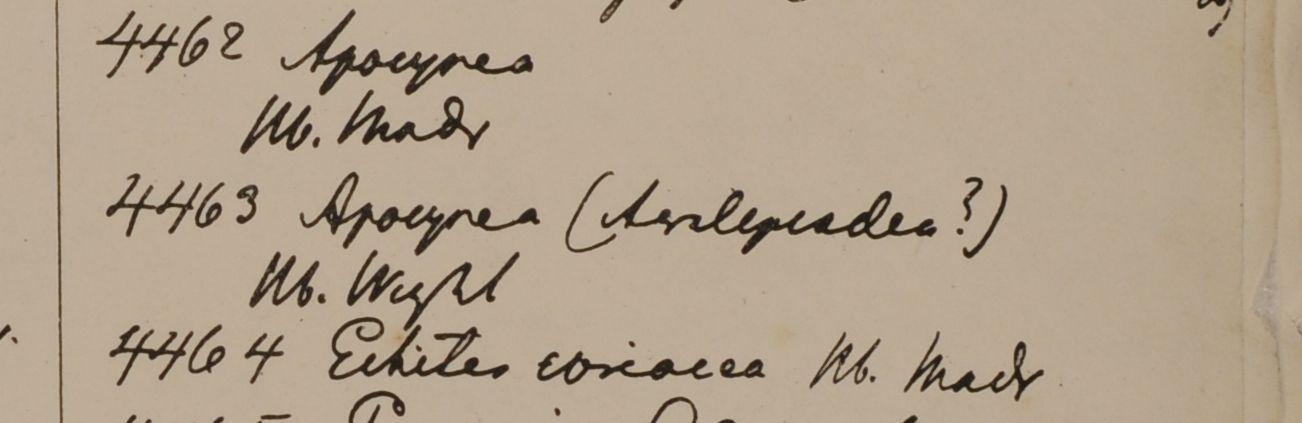 4462 Apocynea
Hb. Madr
4463 Apocynea (Asclepiadea?)
Hb. Wight
4464 Echites coriacea Hb. Madr